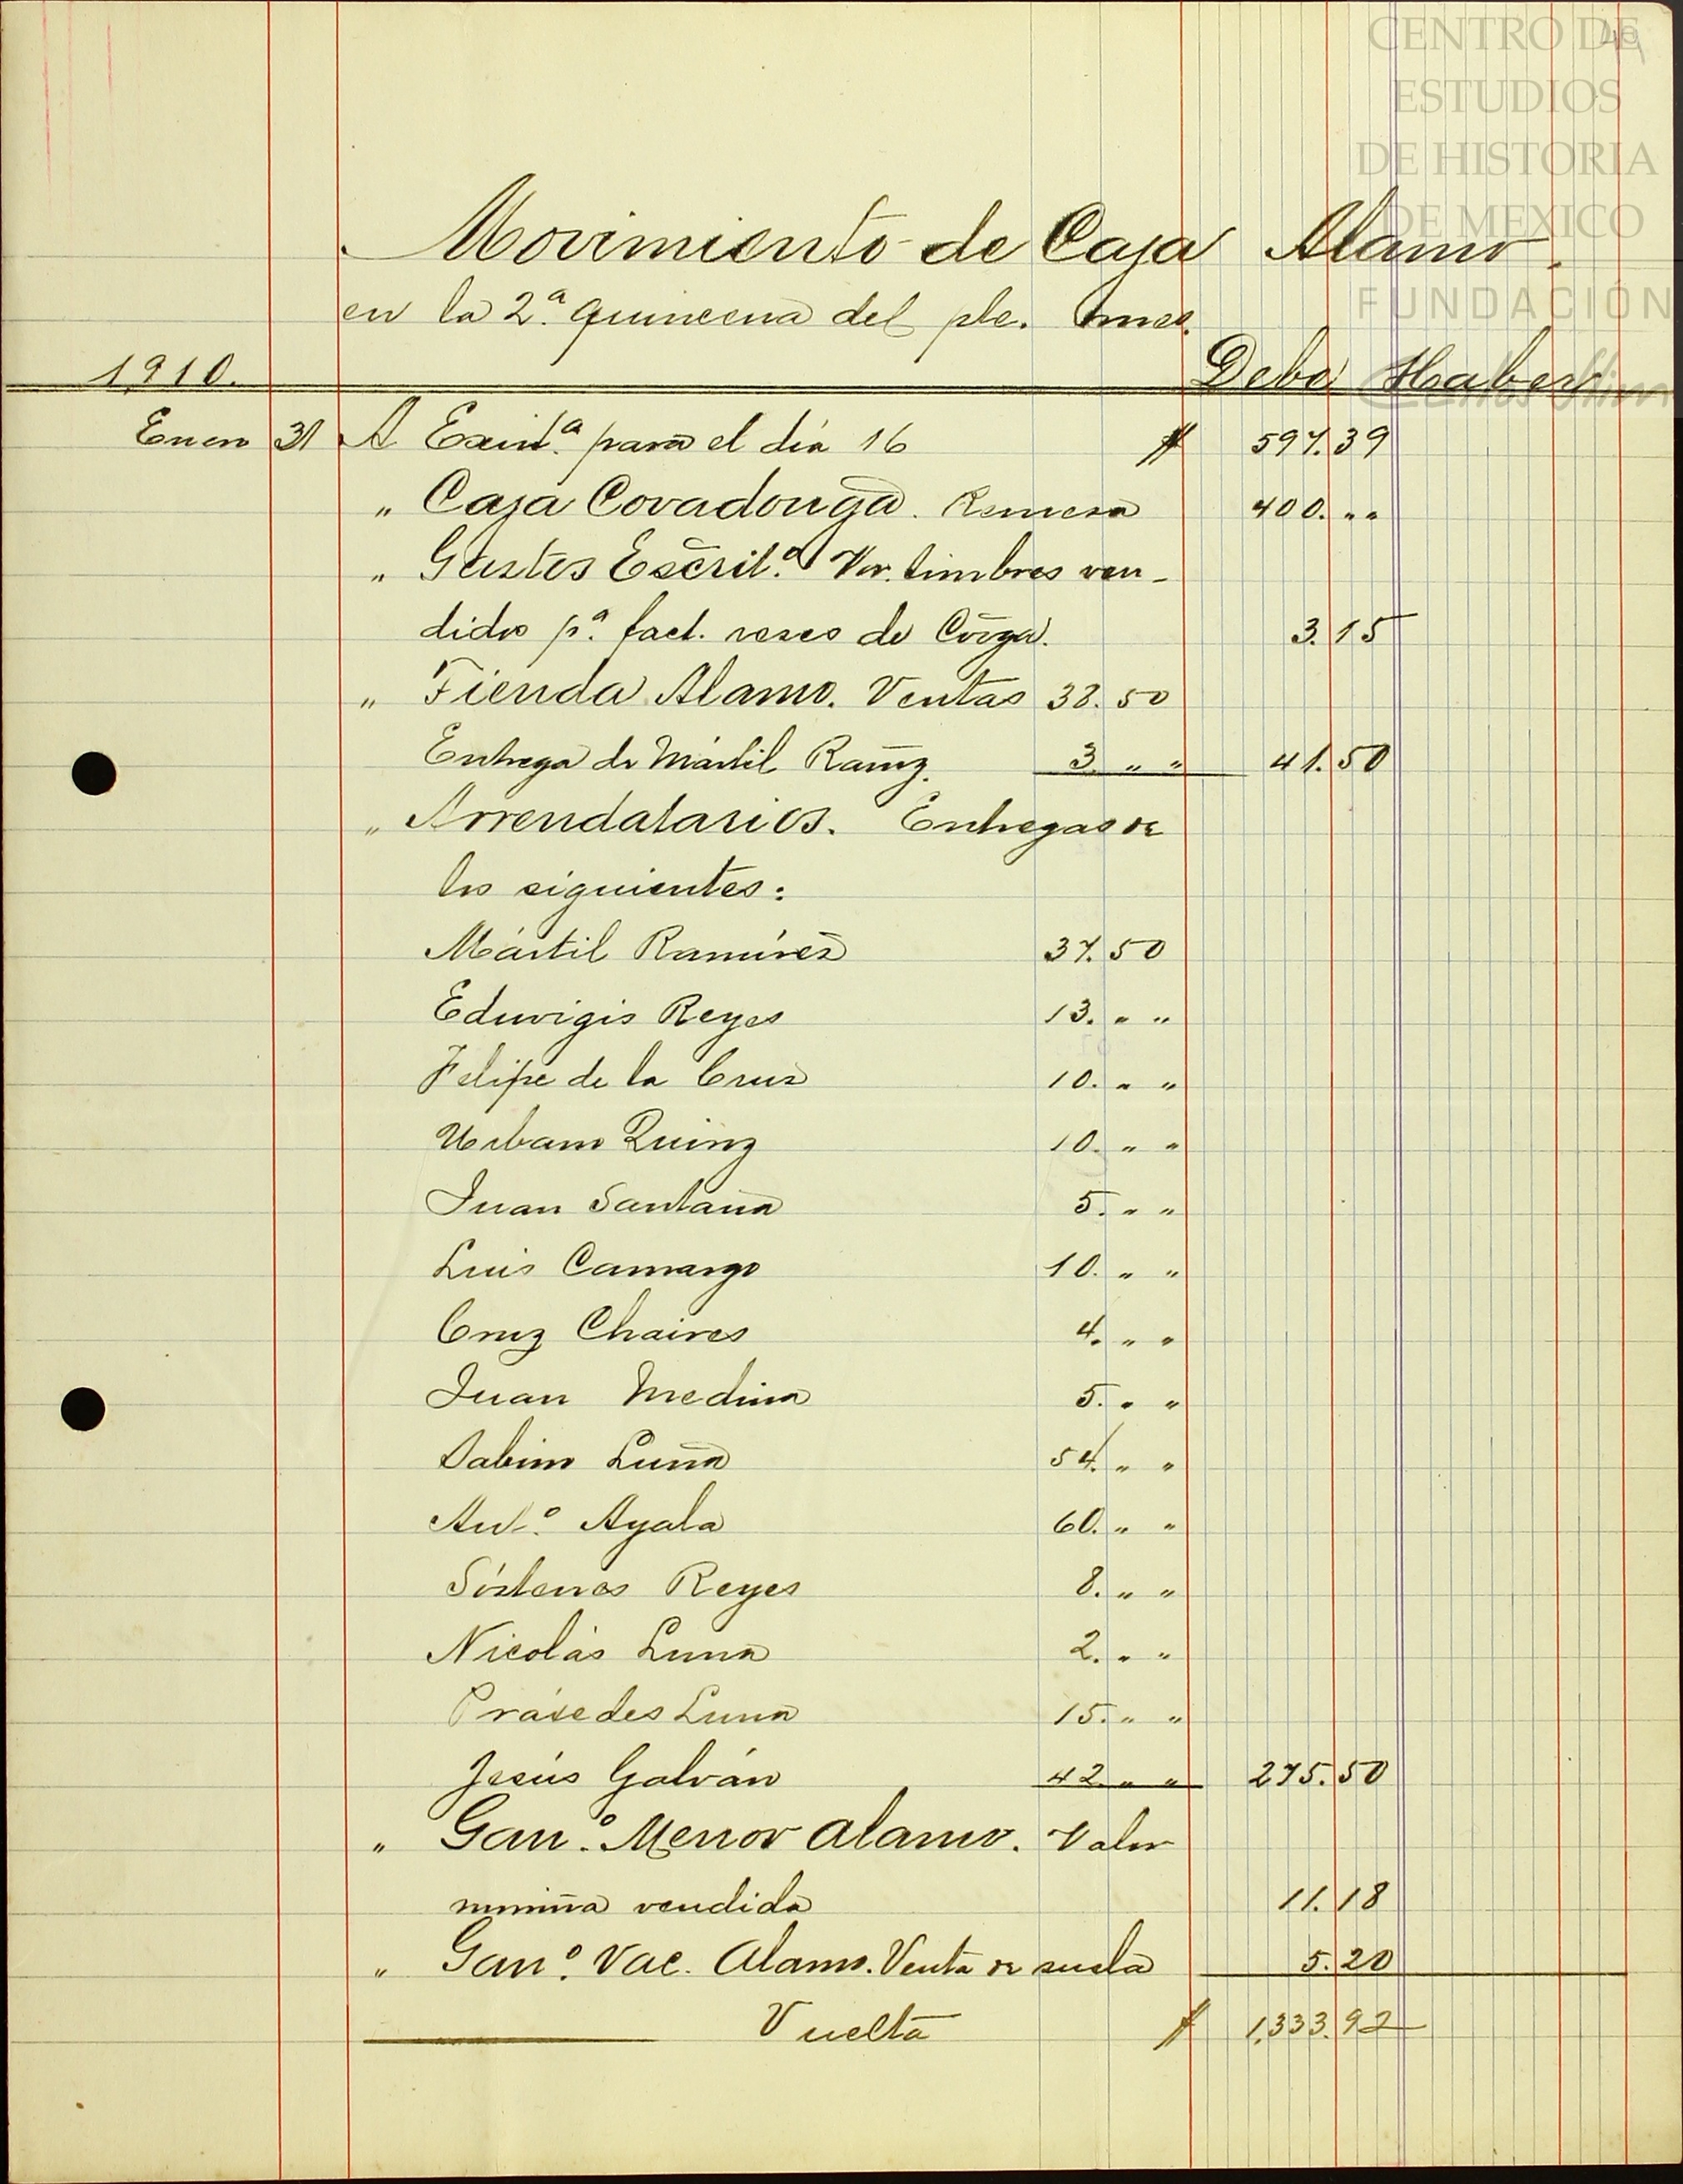 CENTRO DE
ESTUDIOS
DE HISTORIA
DE MEXICO
FUNDACIÓN
Carlos Slim
Movimiento de Caja Alamo.
en la 2ª quincena del pte. mes.
1910. Debe Haber
Enero 31 A Exist.ª para el día 16 $ 597.39
" Caja Covadonga. Remesa 400. " "
" Gastos Escrit.º Vor. timbres ven-
didos p.ª fact. reses de Covga. 3.15
" Tienda Alamo. Ventas 38.50
Entrega de Mártil Ramz. 3. " " 41.50
" Arrendatarios. Entregas de
los siguientes:
Mártil Ramírez 37.50
Eduvigis Reyes 13. " "
Felipe de la Cruz 10. " "
Urbano Quinz 10. " "
Juan Santana 5. " "
Luis Camargo 10. " "
Cruz Chaires 4. " "
Juan Medina 5. " "
Sabino Luna 54. " "
Ant.º Ayala 60. " "
Sóstenes Reyes 8. " "
Nicolás Luna 2. " "
Práxedes Luna 15. " "
Jesús Galván 42. " " 275.50
" Gan.º Menor Alamo. Valor
vendida 11.18
" Gan.º Vac. Alamo. Venta de suela 5.20
Vuelta $ 1,333.92